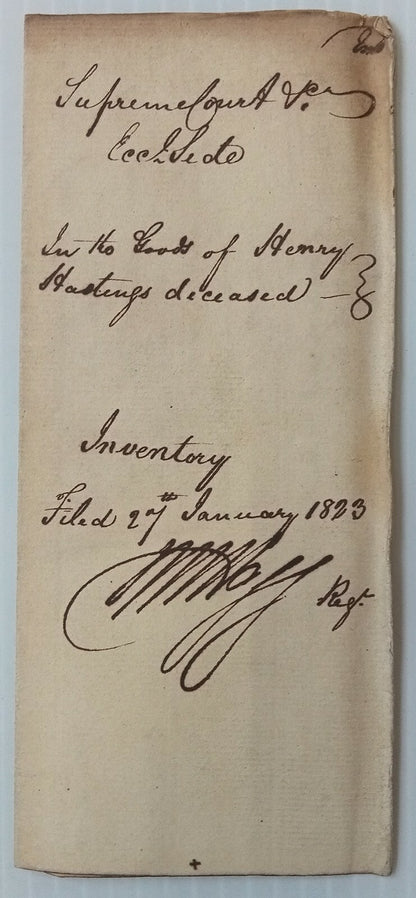 Supreme Court &ca
Eccl Side
In the Goods of Henry
Hastings deceased —
Inventory
Filed 27th January 1823
Regr